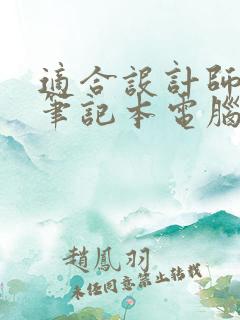 適合設計師
筆記本電腦
趙鳳羽
未任同意禁止轉載